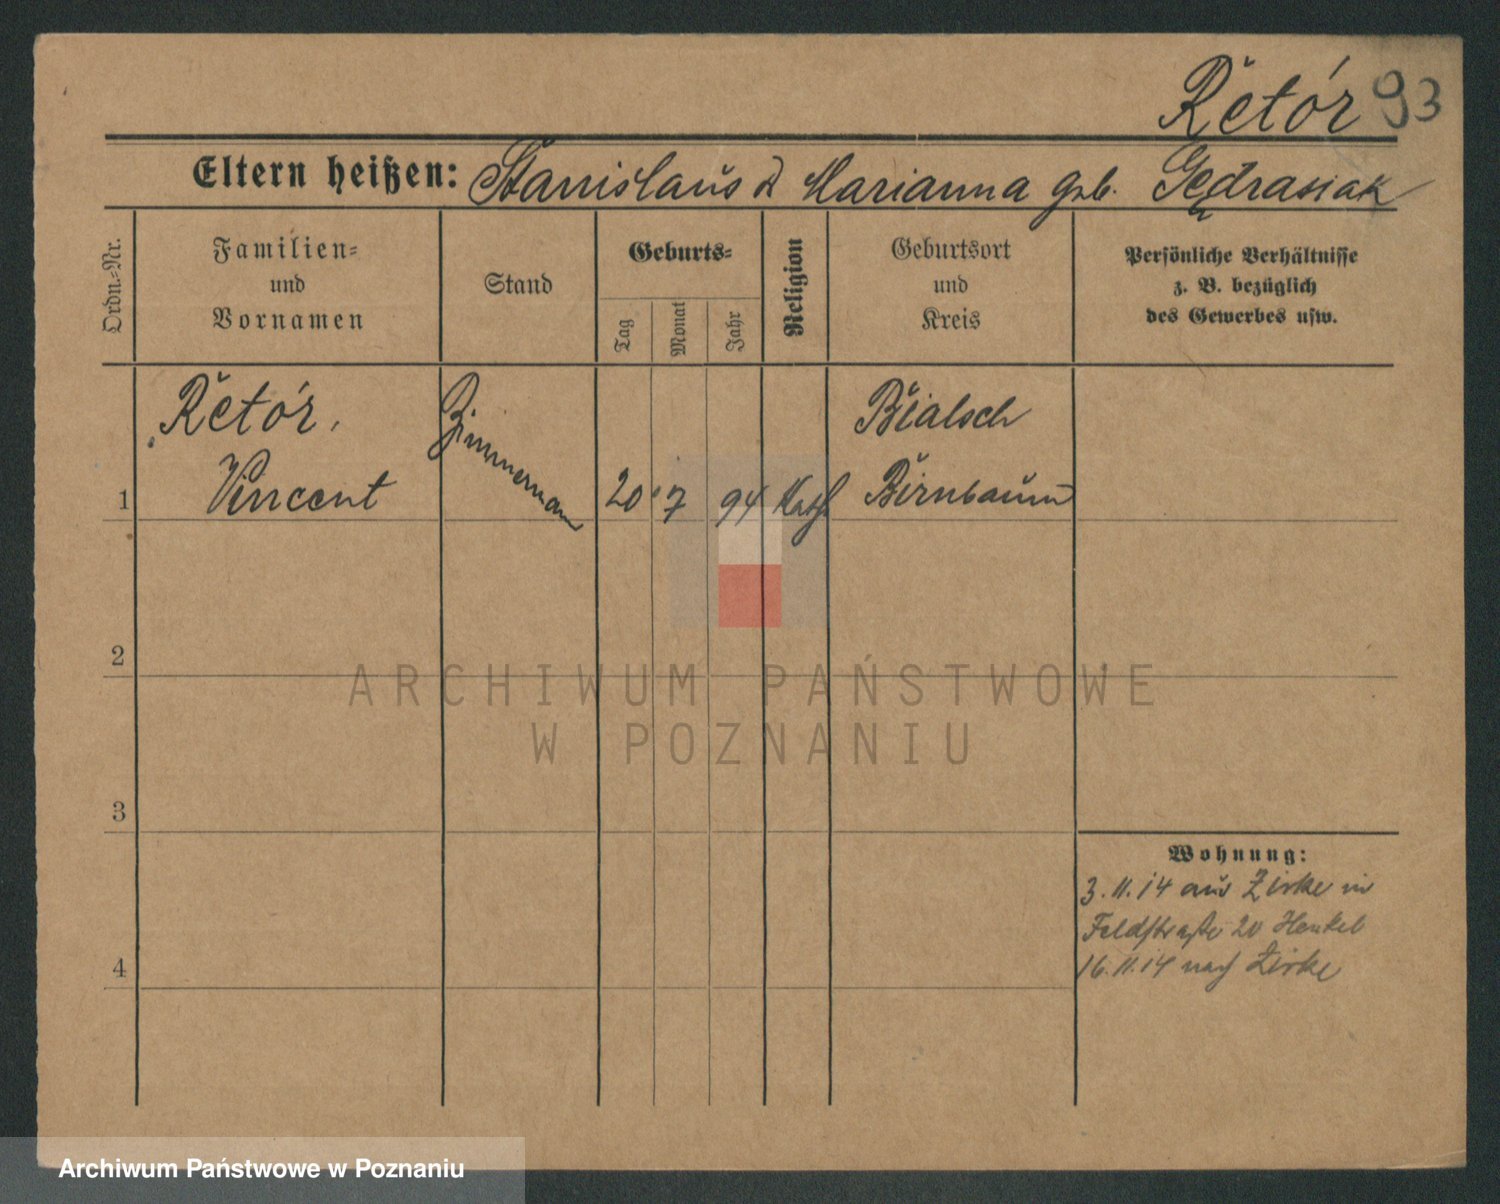 Retór 93
Eltern heißen: Stanislaus & Marianna geb. Gędrasiak
Ordn.=Nr.
Familien=
und
Vornamen
Stand
Geburts=
Tag
Monat
Jahr
Religion
Geburtsort
und
Kreis
Persönliche Verhältnisse
z. B. bezüglich
des Gewerbes usw.
Retór,
Vincent
Zimmerman
20 7 94
Kath
Bialsch
Birnbaum
1
2
3
4
Wohnung:
3.11.14 aus Zirke in
Feldstraße 20 Henkel
16.11.14 nach Zirke
ARCHIWUM PAŃSTWOWE
W POZNANIU
Archiwum Państwowe w Poznaniu